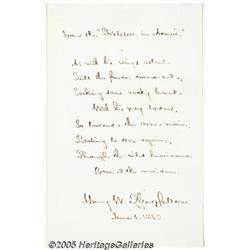 From the "Skeleton in Armor."
As with his wings aslant,
Sails the fierce cormorant,
Seeking some rocky haunt,
With his prey laden,
So toward the open main,
Beating to sea again,
Through the wild hurricane
Bore I the maiden.
Henry W. Longfellow
June 1.
© 2005 HeritageGalleries.com